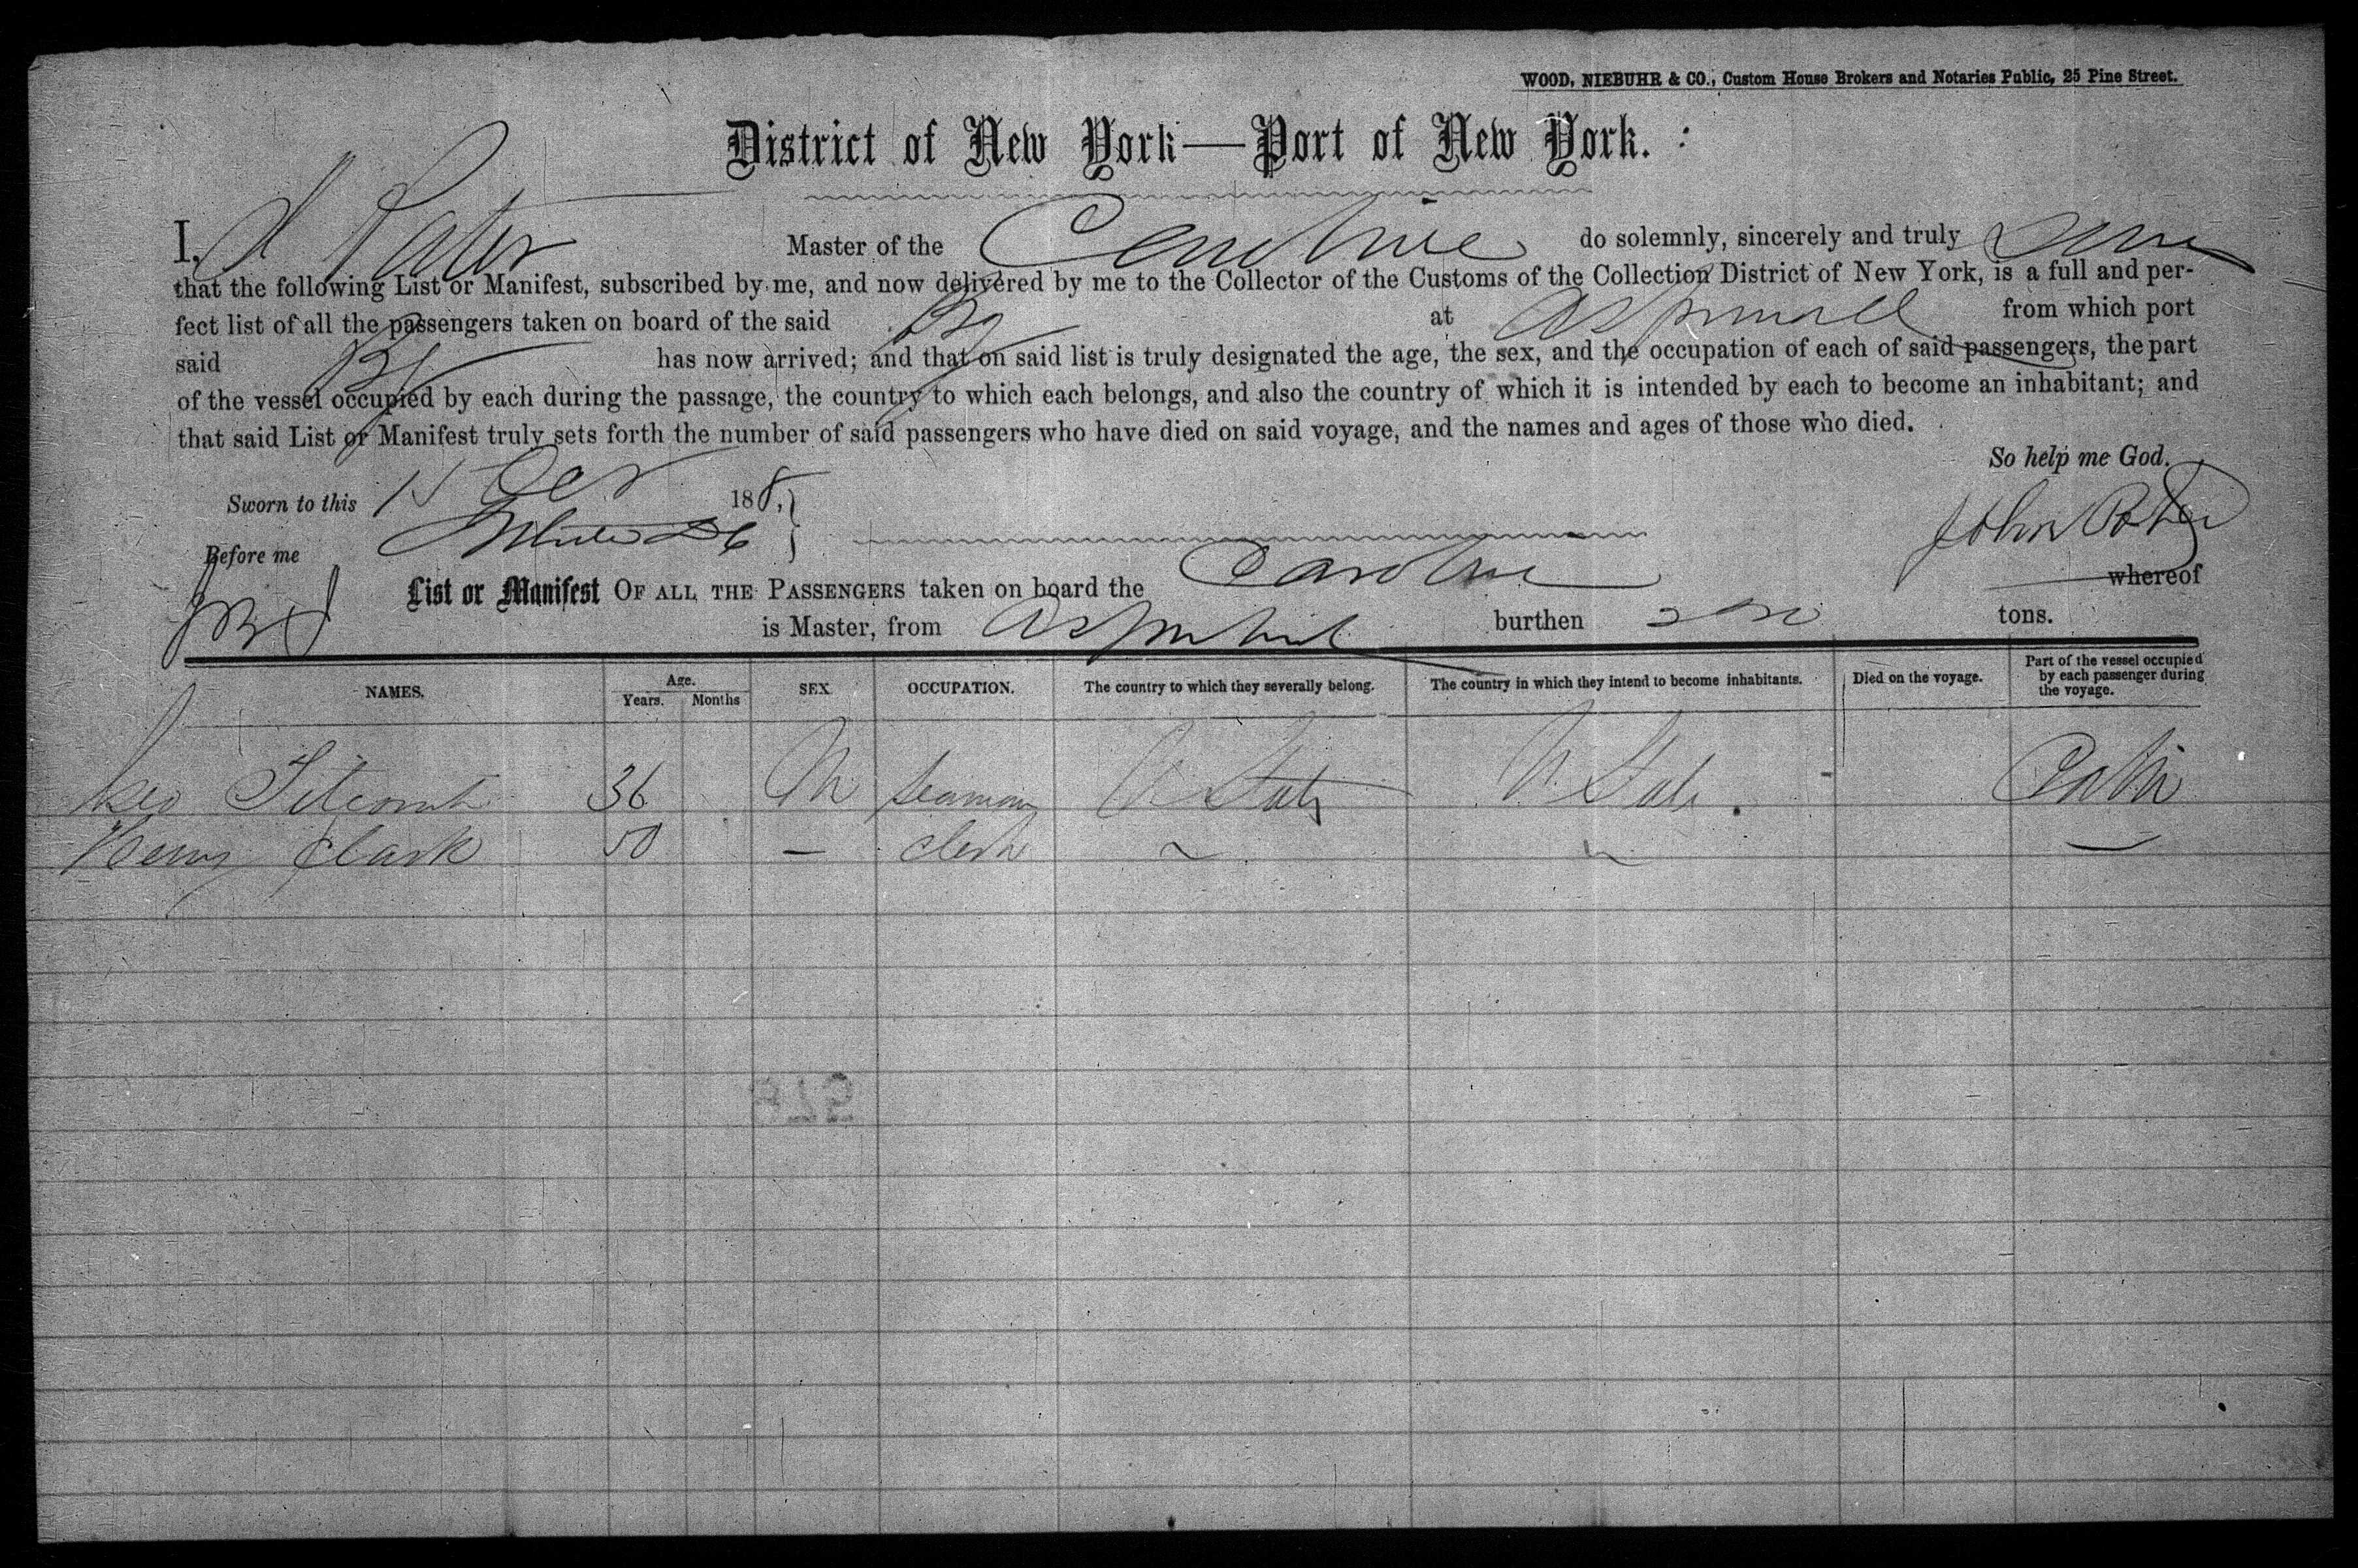 WOOD, NIEBUHR & CO., Custom House Brokers and Notaries Public, 25 Pine Street.
District of New York—Port of New York.
I, Master of the Caroline do solemnly, sincerely and truly
that the following List or Manifest, subscribed by me, and now delivered by me to the Collector of the Customs of the Collection District of New York, is a full and per-
fect list of all the passengers taken on board of the said Bg at Aspinwall from which port
said Bg has now arrived; and that on said list is truly designated the age, the sex, and the occupation of each of said passengers, the part
of the vessel occupied by each during the passage, the country to which each belongs, and also the country of which it is intended by each to become an inhabitant; and
that said List or Manifest truly sets forth the number of said passengers who have died on said voyage, and the names and ages of those who died.
So help me God.
Sworn to this 188
Before me John
List or Manifest OF ALL THE PASSENGERS taken on board the Caroline whereof
is Master, from Aspinwall burthen tons.
NAMES. Age. Years. Months SEX. OCCUPATION. The country to which they severally belong. The country in which they intend to become inhabitants. Died on the voyage. Part of the vessel occupied by each passenger during the voyage.
Geo Titcomb 36 M Seaman U States U States Cabin
Henry Clark 50 — clerk